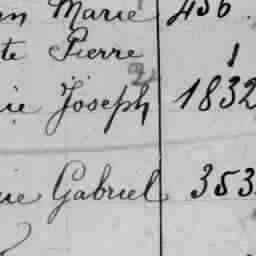 Marie 456.
te Pierre 1
ie Joseph 1832
ie Gabriel 353